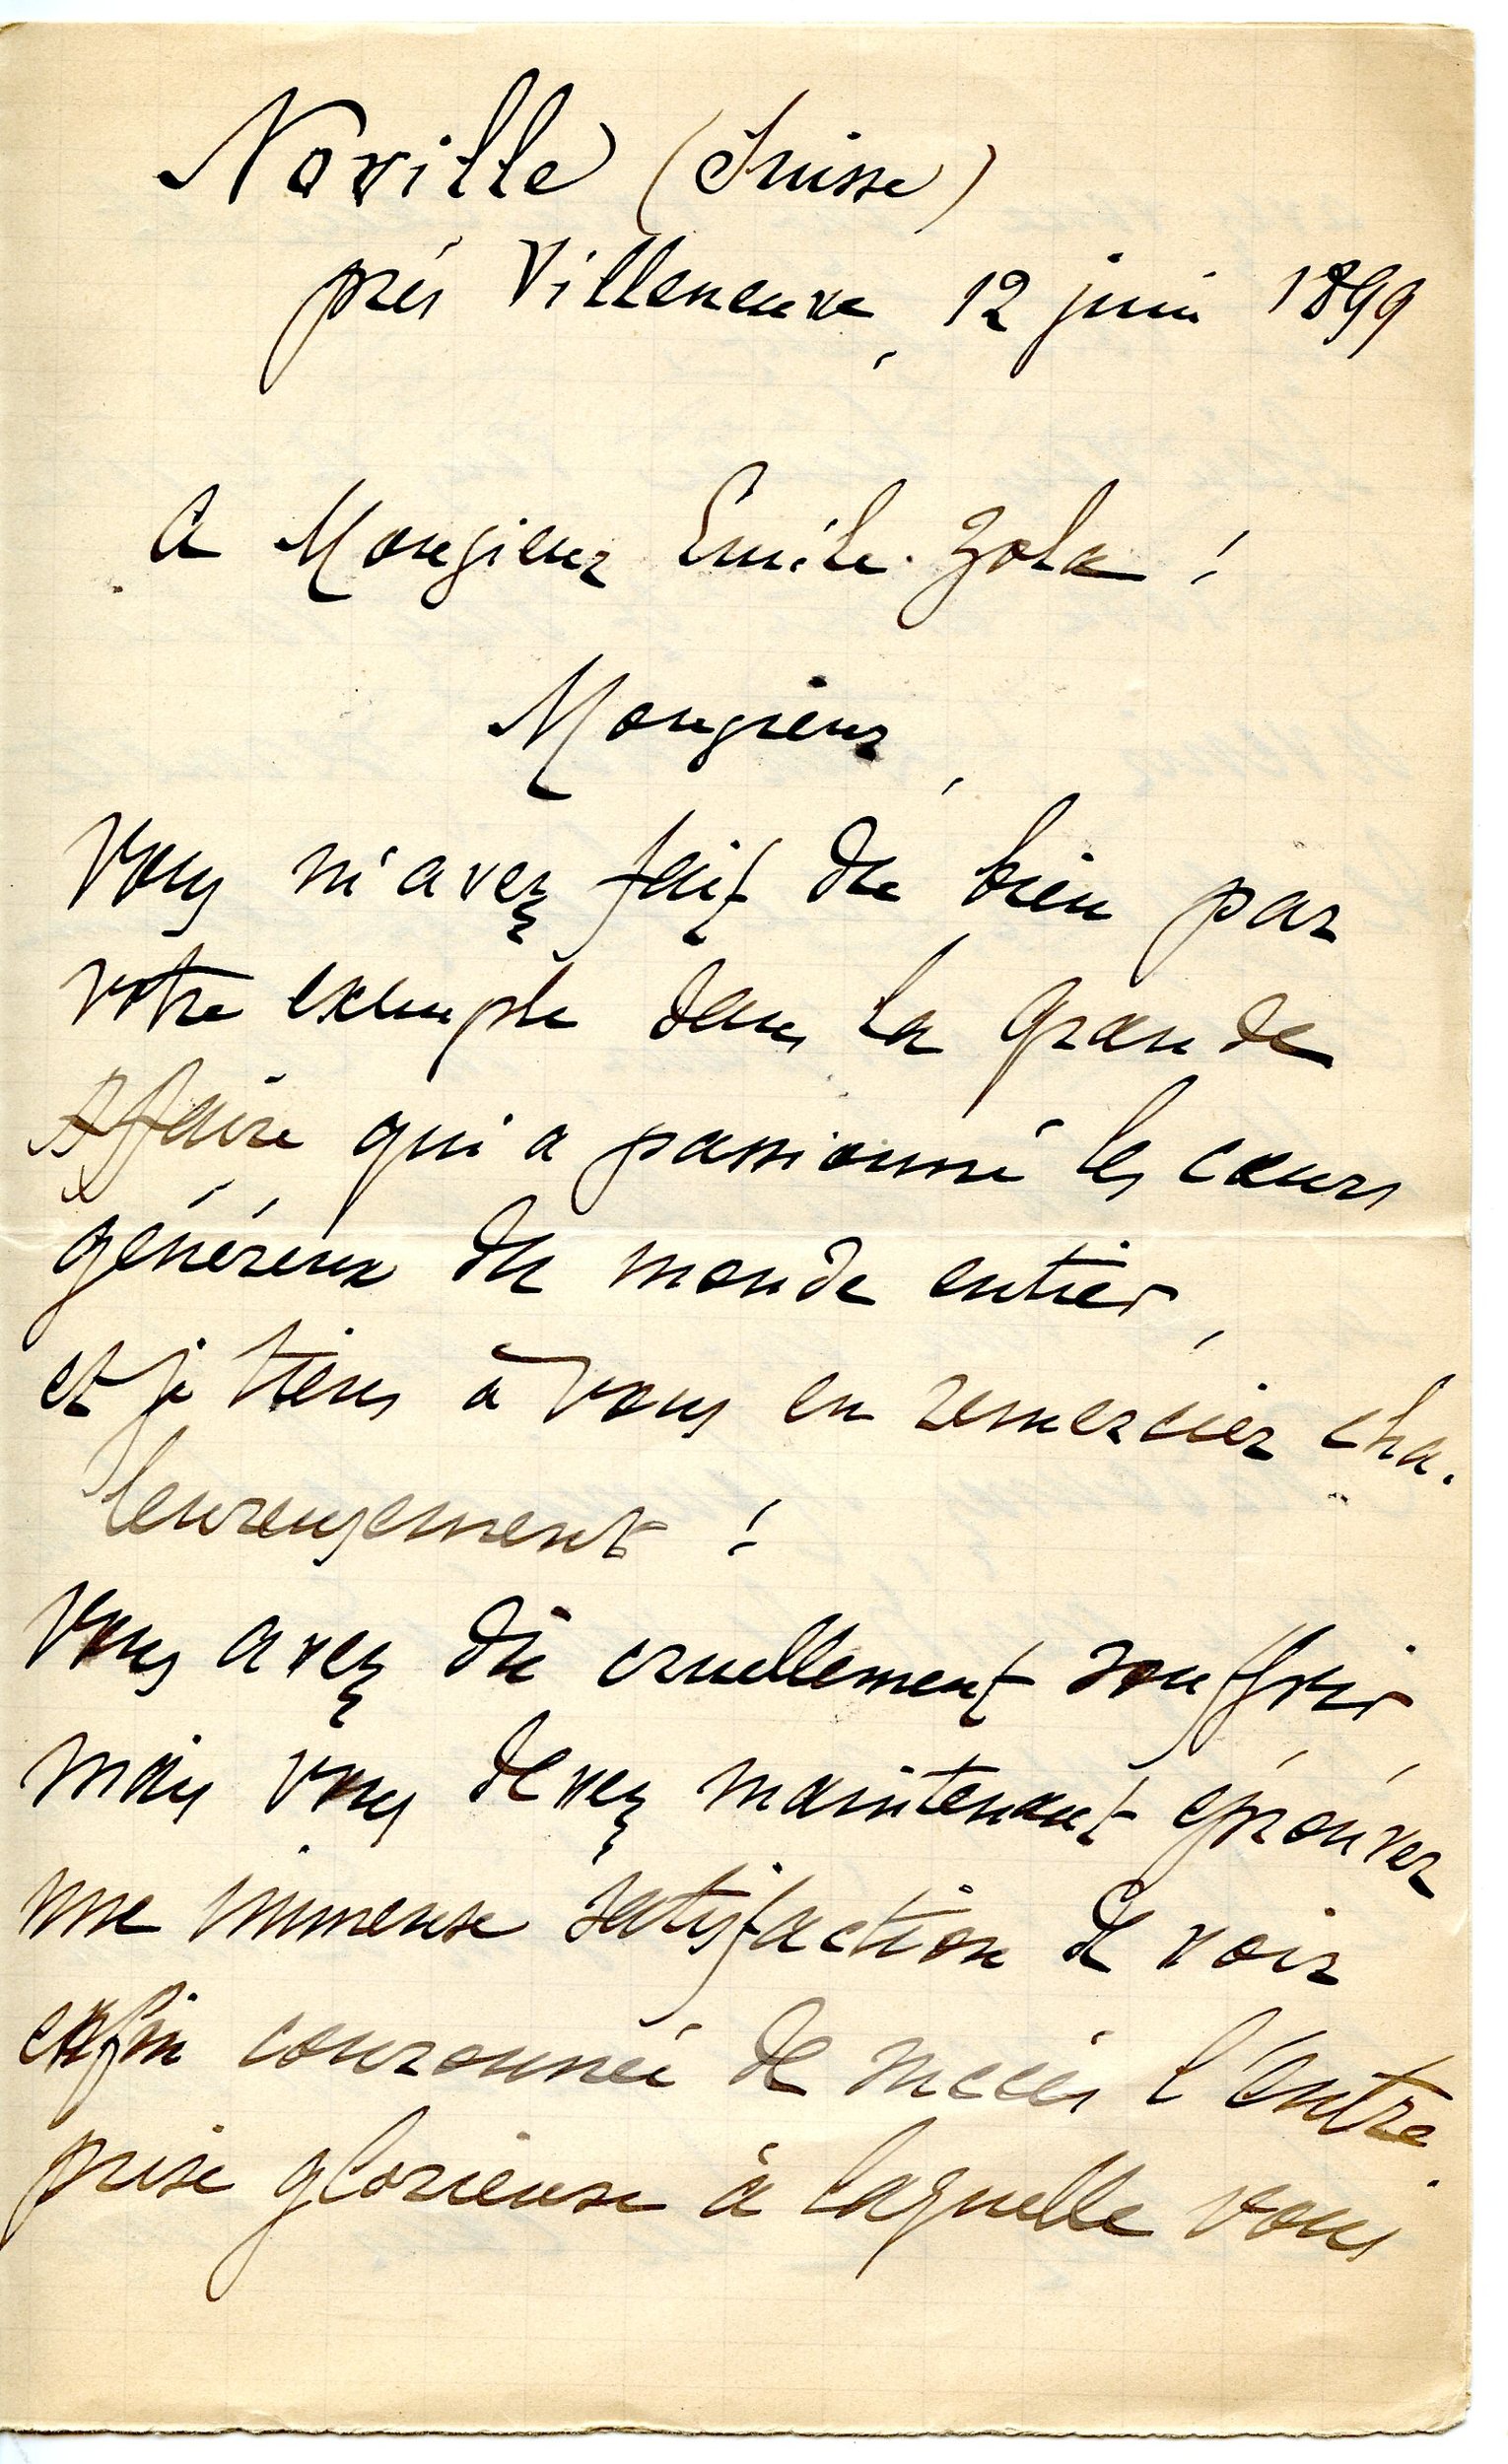 Noville (Suisse)
près Villeneuve, 12 juin 1899
A Monsieur Emile Zola !
Monsieur,
Vous m'avez fait du bien par
votre exemple dans la grande
Affaire qui a passionné les cœurs
généreux du monde entier,
et je tiens à vous en remercier cha-
leureusement !
Vous avez dû cruellement souffrir,
mais vous devez maintenant éprouver
une immense satisfaction de voir
enfin couronnée de succès l'entre-
prise glorieuse à laquelle vous